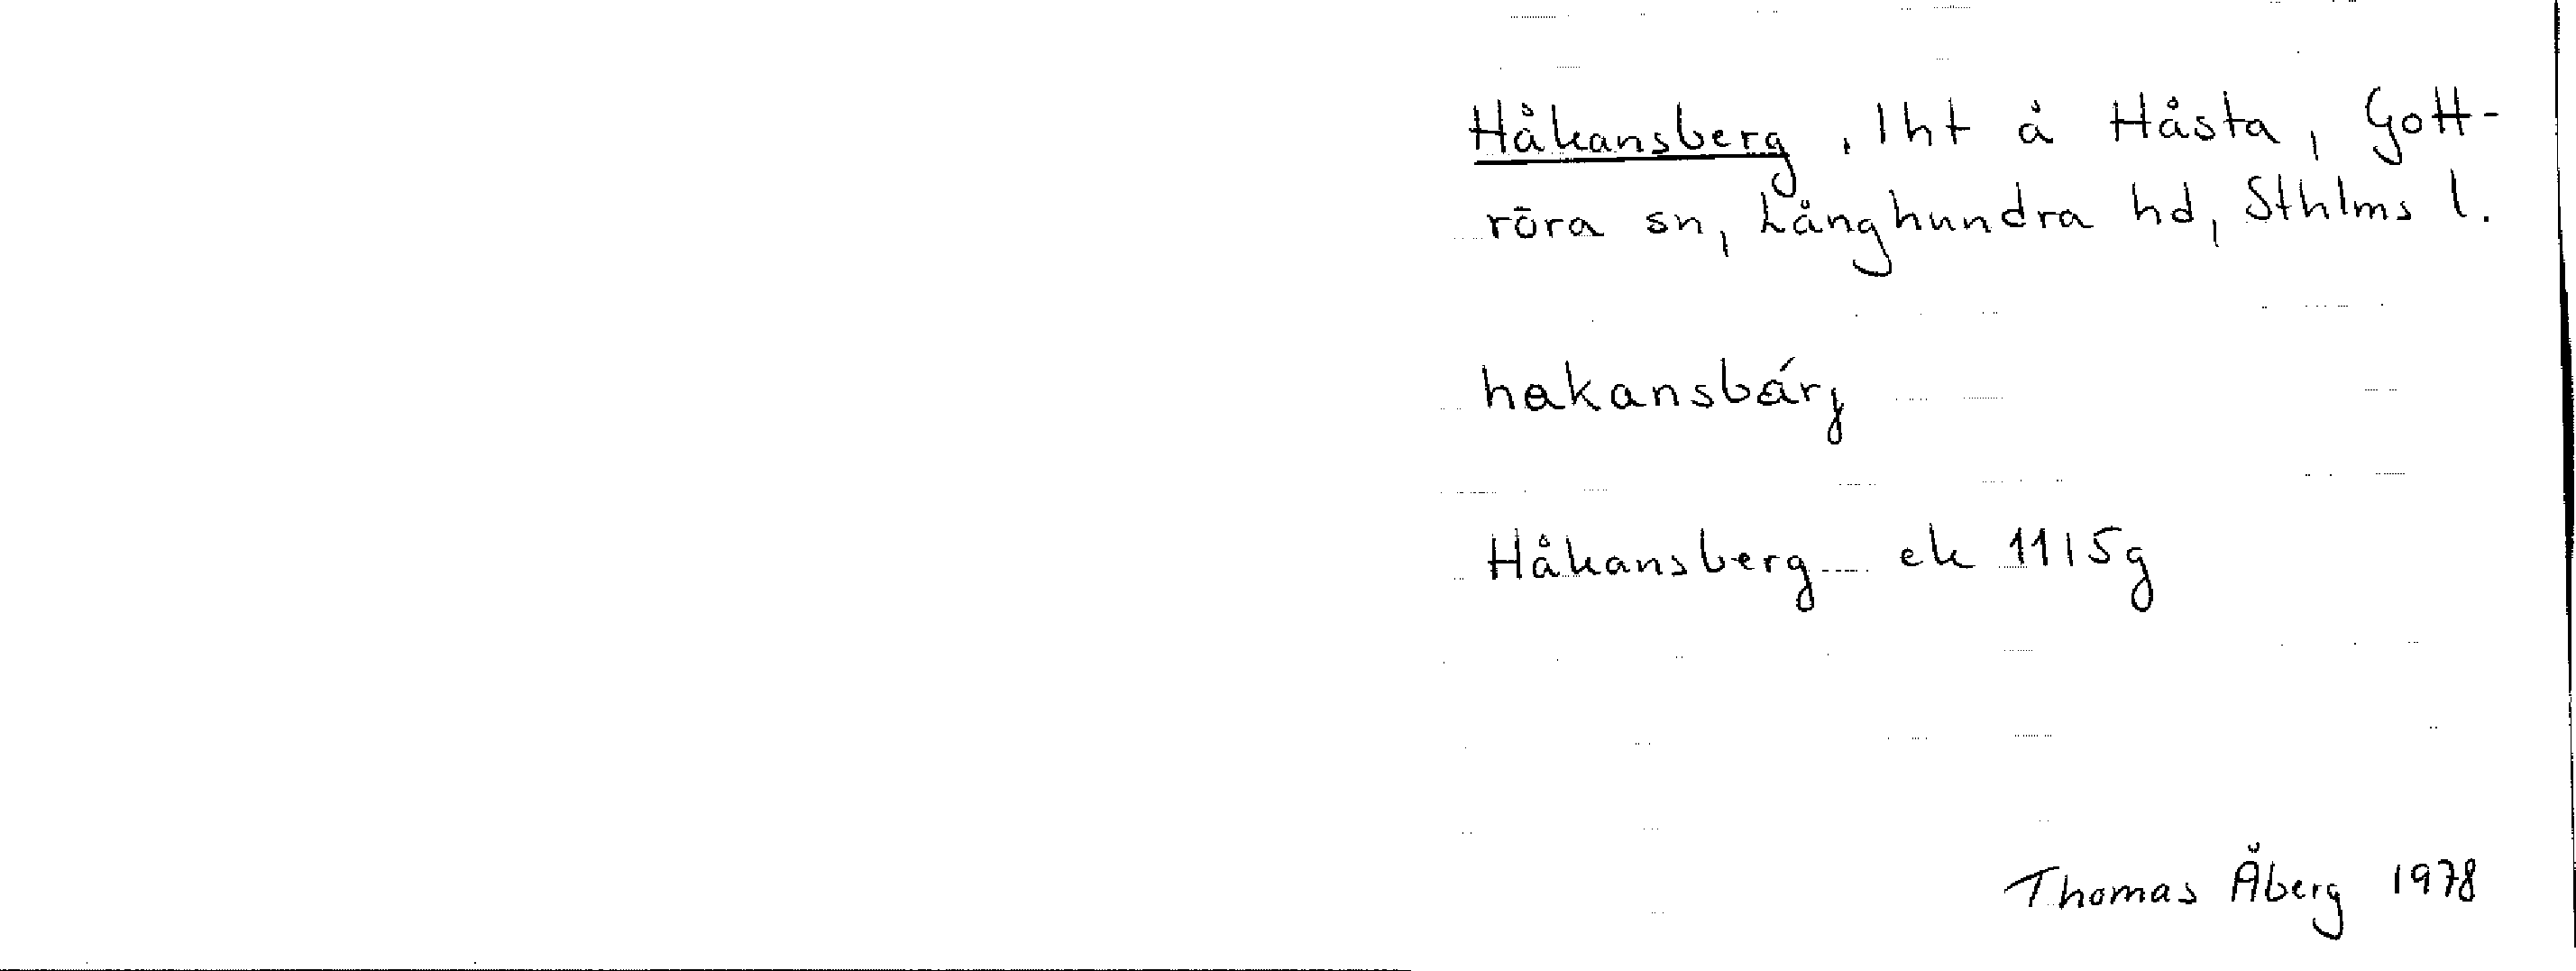 Håkansberg, lht å Håsta, Gott-
röra sn, Långhundra hd, Sthlms l.
hakansbárj
Håkansberg ek 11I5g
Thomas Åberg 1978